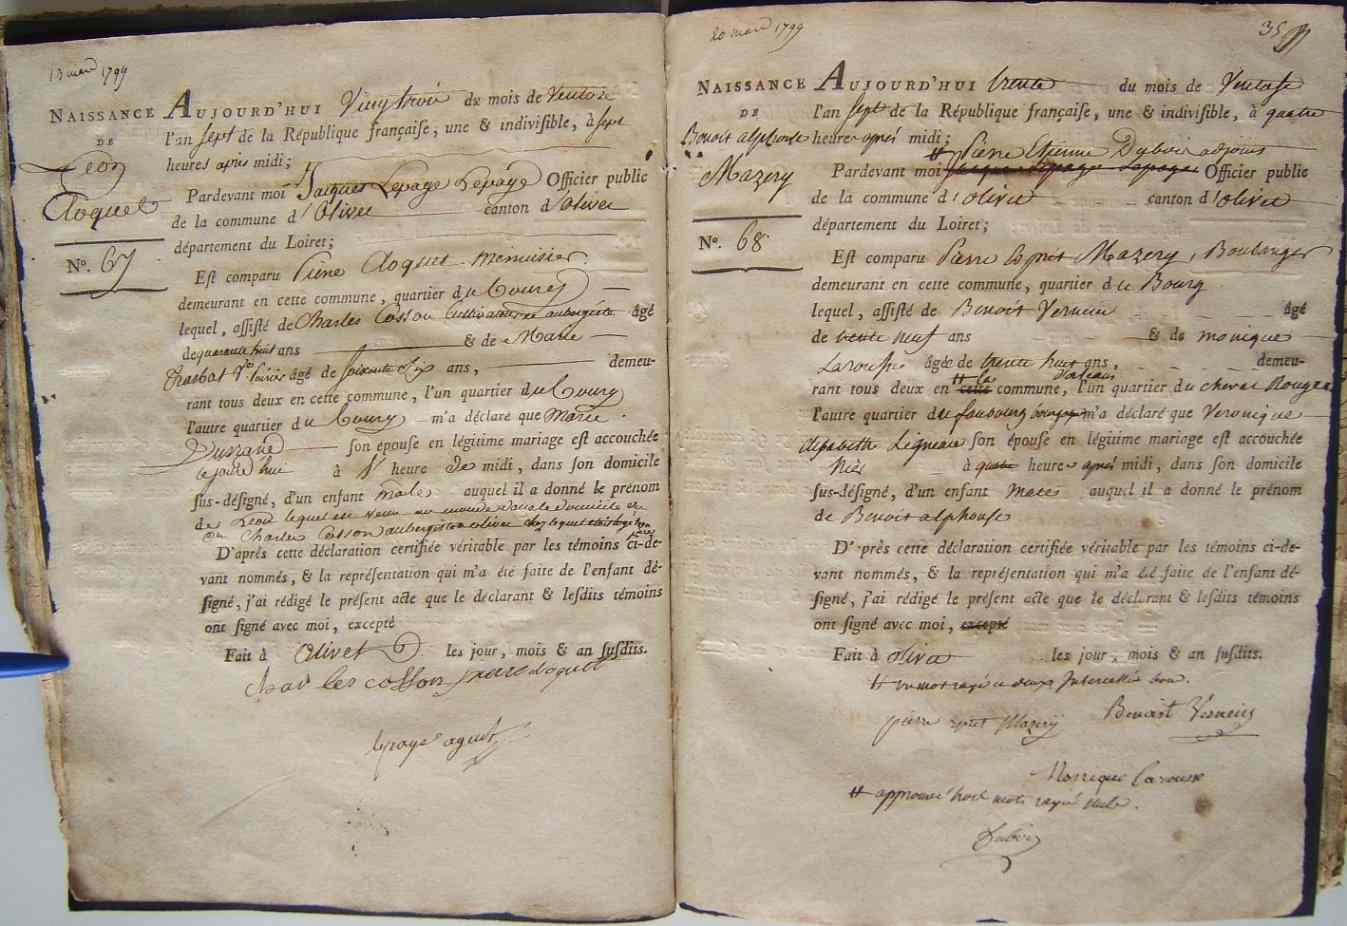 13 mars 1799
NAISSANCE
DE
Leon
Cloquet
N°. 67
AUJOURD'HUI Vingt trois du mois de Ventose
l'an sept de la République françaiſe, une & indiviſible, à sept
heures après midi;
Pardevant moi Jacques Lepage Lepage Officier public
de la commune d'Olivet canton d'olivet
département du Loiret;
Eſt comparu Pierre Cloquet menuisier
demeurant en cette commune, quartier du Bourg
lequel, aſſiſté de Charles Cosson Cultivateur et aubergiste âgé
de quarante huit ans & de Marie
âgé de soixante dix ans, demeu-
rant tous deux en cette commune, l'un quartier du Bourg
l'autre quartier du Bourg m'a déclaré que Marie
ſon épouse en légitime mariage eſt accouchée
cejourd'hui à heure de midi, dans ſon domicile
ſus-déſigné, d'un enfant male auquel il a donné le prénom
de Leon lequel est venu au monde dans le domicile de
Charles Cosson aubergiste a olivet chez lequel
D'après cette déclaration certifiée véritable par les témoins ci-de-
vant nommés, & la repréſentation qui m'a été faite de l'enfant dé-
ſigné, j'ai rédigé le préſent acte que le déclarant & leſdits témoins
ont ſigné avec moi, excepté
Fait à Olivet les jour, mois & an ſuſdits.
charles cosson pierre cloquet
lepage agent
20 mars 1799
35
NAISSANCE
DE
Benoit alphonse
Mazery
N°. 68
AUJOURD'HUI trente du mois de Ventose
l'an sept de la République françaiſe, une & indiviſible, à quatre
heures après midi;
# Pierre Etienne Dubois adjoint
Pardevant moi Jacques Lepage Lepage Officier public
de la commune d'olivet canton d'olivet
département du Loiret;
Eſt comparu Pierre Esprit Mazery, Boulanger
demeurant en cette commune, quartier du Bourg
lequel, aſſiſté de Benoit Verneui âgé
de trente neuf ans & de monique
Larousse âgée de trente huit ans, demeu-
rant tous deux en # la cette commune d'orleans, l'un quartier du cheval Rouge
l'autre quartier du faubourg m'a déclaré que Veronique
Elisabeth Ligneau ſon épouse en légitime mariage eſt accouchée
hier à quatre heures après midi, dans ſon domicile
ſus-déſigné, d'un enfant males auquel il a donné le prénom
de Benoit alphonse
D'près cette déclaration certifiée véritable par les témoins ci-de-
vant nommés, & la repréſentation qui m'a été faite de l'enfant dé-
ſigné, j'ai rédigé le préſent acte que le déclarant & leſdits témoins
ont ſigné avec moi, excepté
Fait à olivet les jour, mois & an ſuſdits.
# un mot rayé et deux Interlellés bon.
pierre esprit Mazery Benoist Verneuis
Monique Larousse
# approuvé trois mots rayés nuls.
Dubois